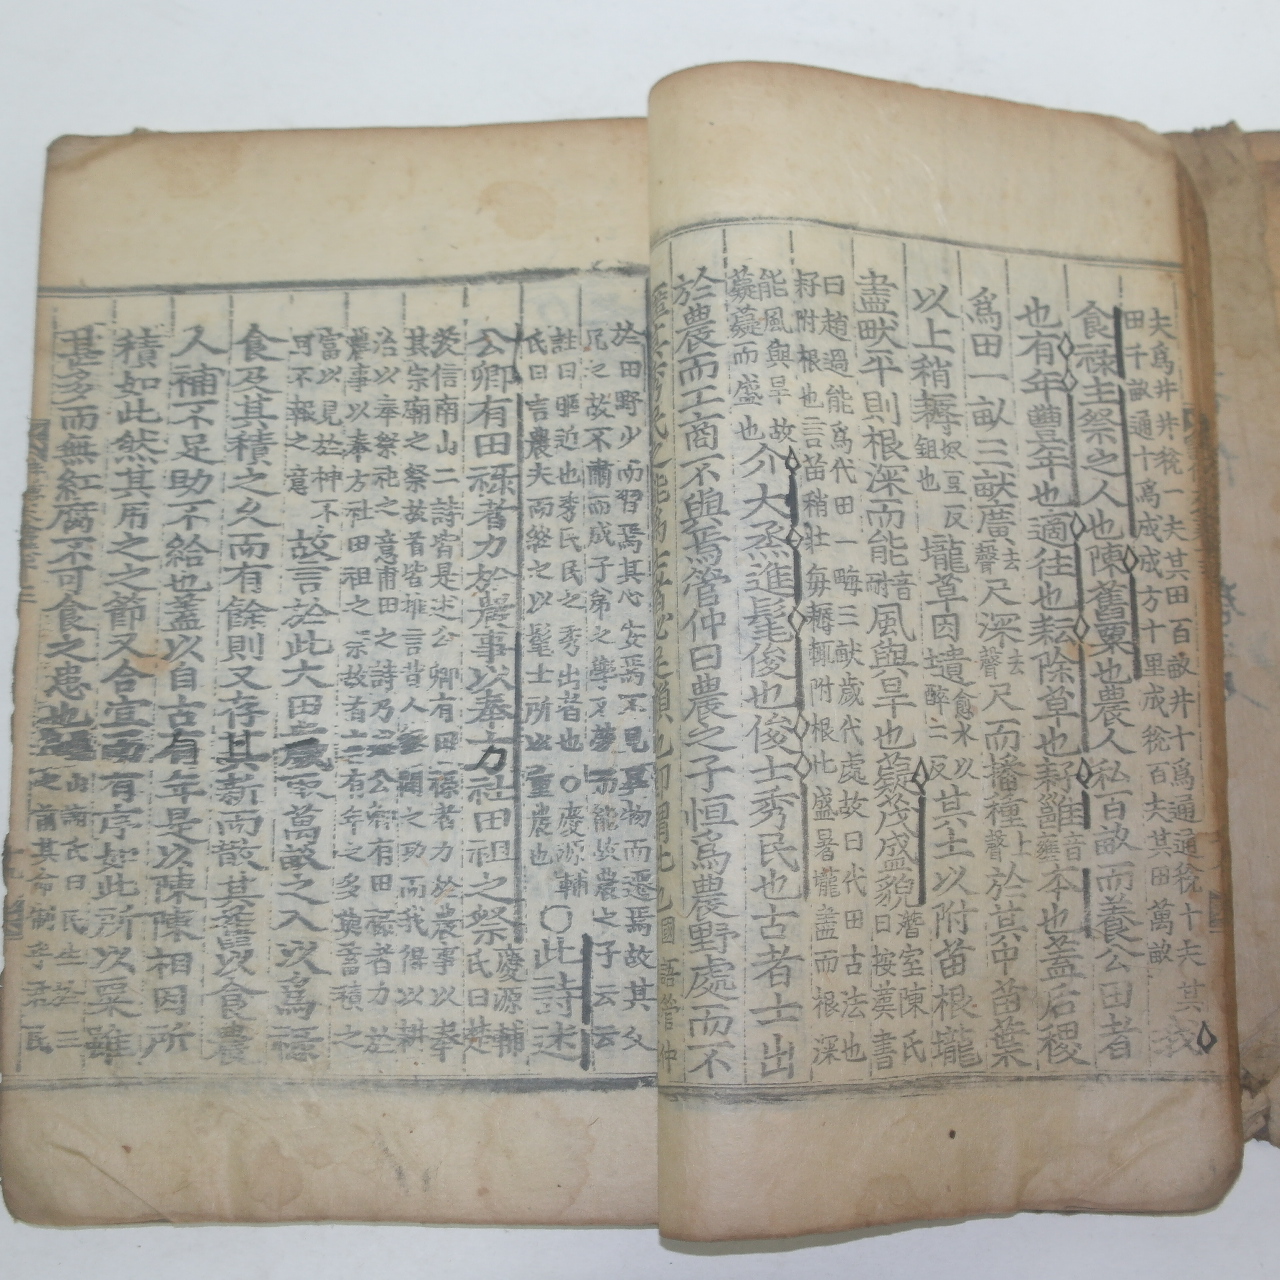 夫爲井井稅一夫其田百畝井十爲通通稅十夫其
田千畝通十爲成成方十里成稅百夫其田萬畝
我
食祿主祭之人也陳舊粟也農人私百畝而養公田者
也有年豐年也適往也耘除草也耔雝音壅本也蓋后稷
爲田一畝三畎廣去聲尺深去聲尺而播種上聲於其中苗葉
以上稍耨奴豆反鉏也壠草因壝愈水以醉二反其土以附苗根壠
盡畎平則根深而能音耐風與旱也薿茂盛貌潛室陳氏
曰按漢書
曰趙過能爲代田一畮三畎歲代處故曰代田古法也
耔附根也言苗稍壯每耨輒附根比盛暑壠盡而根深
能風與旱故
薿薿而盛也介大烝進髦俊也俊士秀民也古者士出
於農而工商不與焉管仲曰農之子恒爲農野處而不
國語管仲
於田野少而習焉其心安焉不見異物而遷焉故其父
兄之故不肅而成子弟之學不勞而能故農之子云云
註曰暱近也秀民民之秀出者也○慶源輔
氏曰言農夫而繼之以髦士所以重農也○此詩述
公卿有田祿者力於農事以奉方社田祖之祭慶源輔
氏曰楚
茨信南山二詩皆是述公卿有田祿者力於農事以奉
其宗廟之祭故皆推言昔人墾闢之功而我得以耕
治以奉祭祀之意甫田之詩乃述公卿有田祿者力於
農事以奉方社田祖之祭故首言有年之多與蓄積之
富以見於神不
可不報之意故言於此大田之歲取萬畝之入以爲祿
食及其積之久而有餘則又存其新而散其舊以食農
人補不足助不給也蓋以自古有年是以陳陳相因所
積如此然其用之之節又合宜而有序如此所以粟雖
甚多而無紅腐不可食之患也